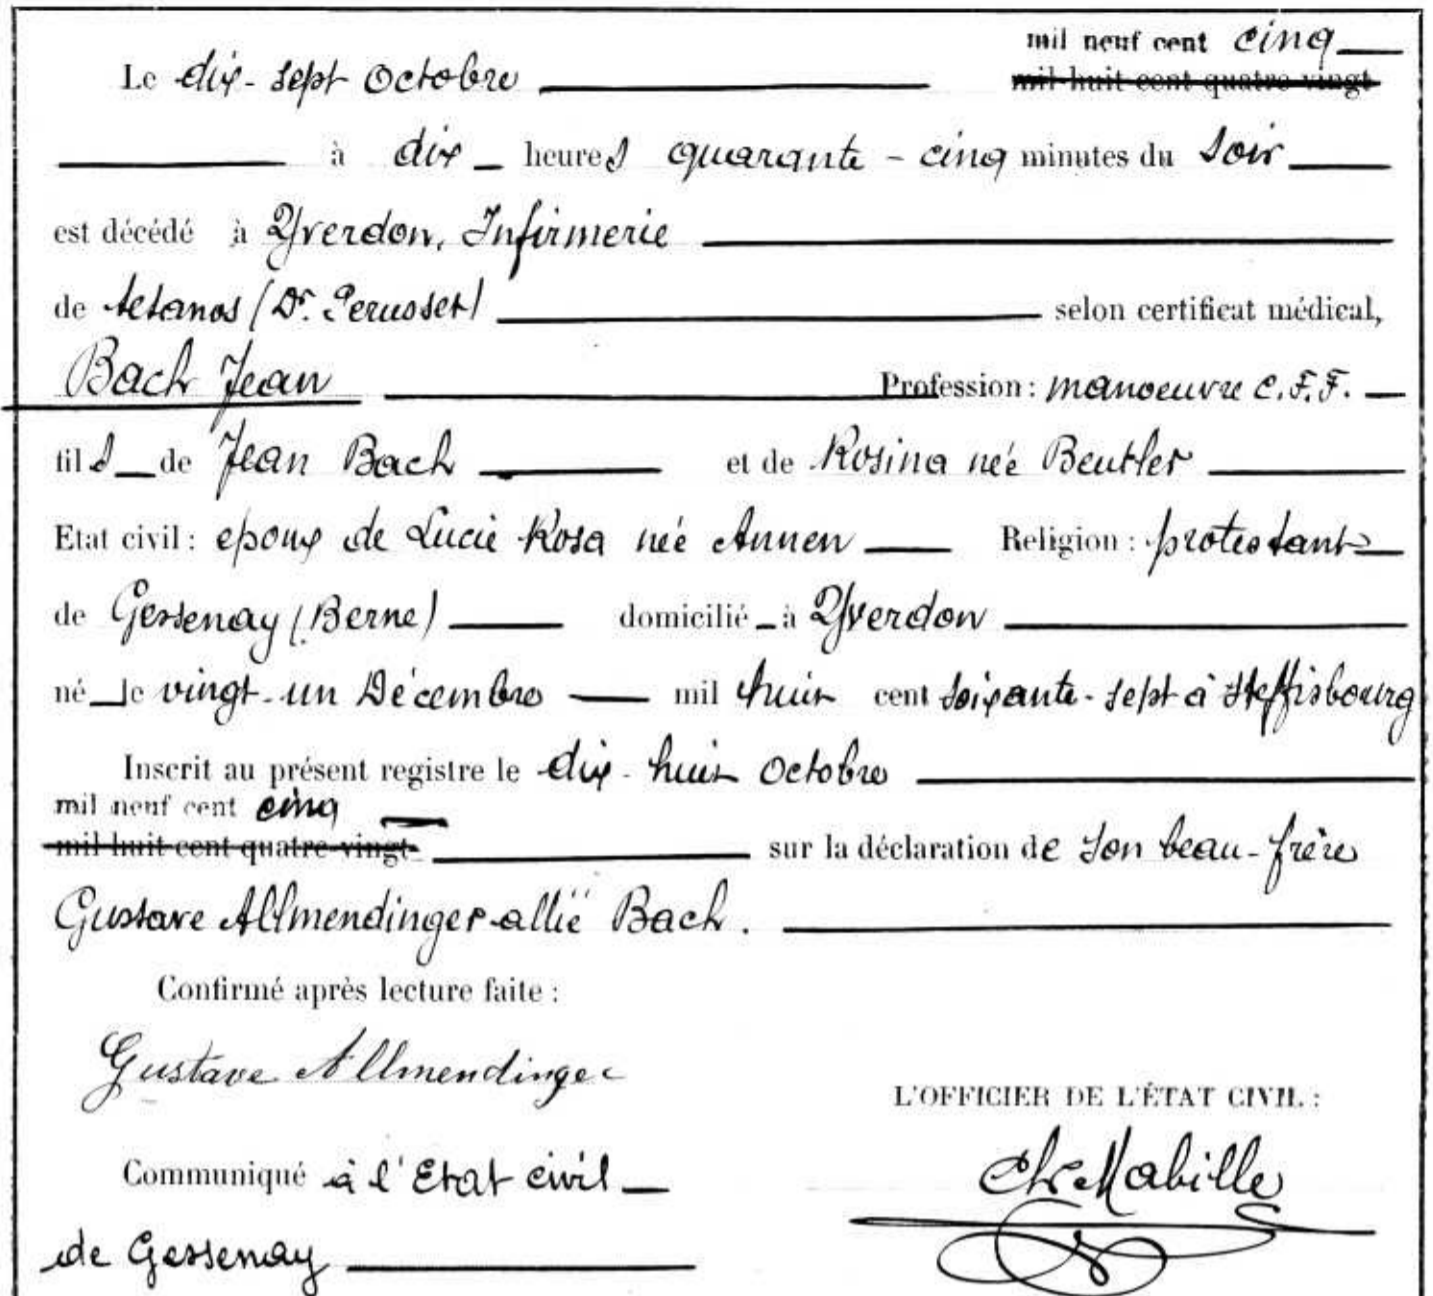 mil neuf cent cinq
Le dix-sept Octobre mil huit cent quatre-vingt
à dix heures quarante-cinq minutes du soir
est décédé à Yverdon, Infirmerie
de tetanos (Dr. Perusset) selon certificat médical,
Bach Jean Profession : manoeuvre C.F.F.
fils de Jean Bach et de Rosina née Beutler
Etat civil : epoux de Lucie Rosa née Annen Religion : protestant
de Gessenay (Berne) domicilié à Yverdon
né le vingt-un Décembre mil huit cent soixante-sept à Steffisbourg
Inscrit au présent registre le dix-huit Octobre
mil neuf cent cinq
mil huit cent quatre-vingt sur la déclaration de son beau-frère
Gustave Allmendinger allié Bach.
Confirmé après lecture faite :
Gustave Allmendinger
L'OFFICIER DE L'ÉTAT CIVIL :
Communiqué à l'Etat civil
Ch. Mabille
de Gessenay